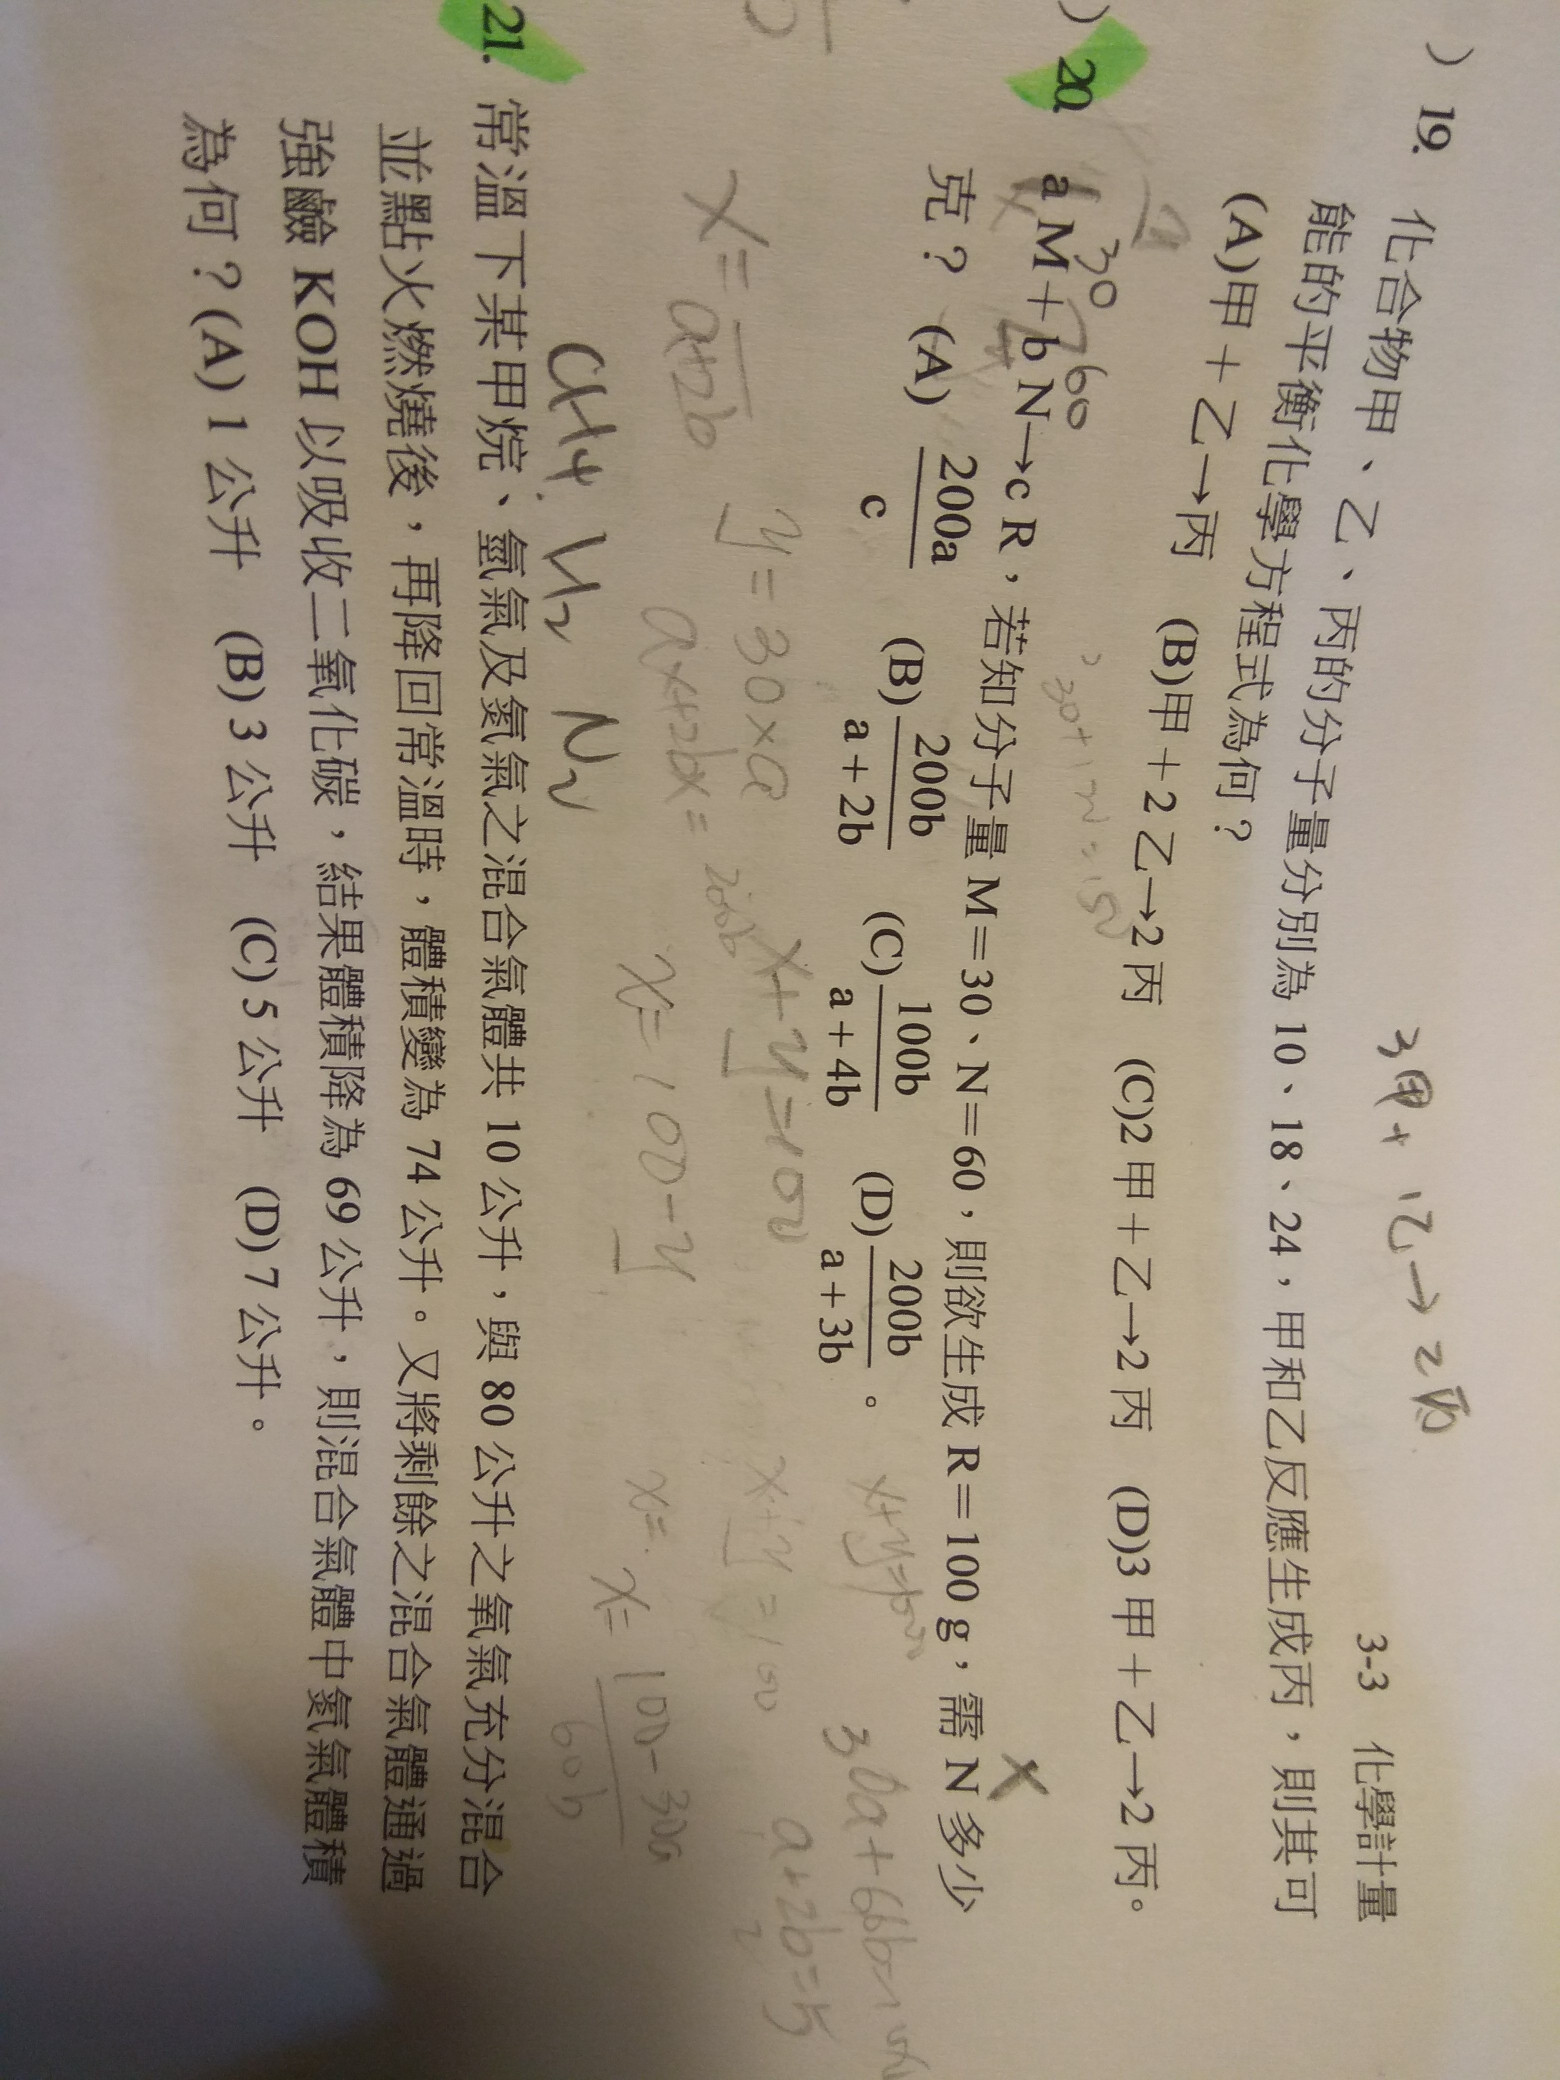 3甲+1乙→2丙
3-3 化學計量
) 19. 化合物甲、乙、丙的分子量分別為 10、18、24，甲和乙反應生成丙，則其可
能的平衡化學方程式為何？
(A)甲+乙→丙 (B)甲+2乙→2丙 (C)2甲+乙→2丙 (D)3甲+乙→2丙。
30 60
) 20. a M+b N→c R，若知分子量 M=30、N=60，則欲生成 R=100 g，需 N 多少
x
克？ (A) 200a/c (B) 200b/a+2b (C) 100b/a+4b (D) 200b/a+3b。
x+y=100
a+2b=5
y=30×a
x+y=100
x+y=100
a+2b
ax+2bx=200b
x=100-y
x=
x= 100-30a/60b
CH4. H2 N2
21. 常溫下某甲烷、氫氣及氮氣之混合氣體共 10 公升，與 80 公升之氧氣充分混合
並點火燃燒後，再降回常溫時，體積變為 74 公升。又將剩餘之混合氣體通過
強鹼 KOH 以吸收二氧化碳，結果體積降為 69 公升，則混合氣體中氮氣體積
為何？(A) 1 公升 (B) 3 公升 (C) 5 公升 (D) 7 公升。